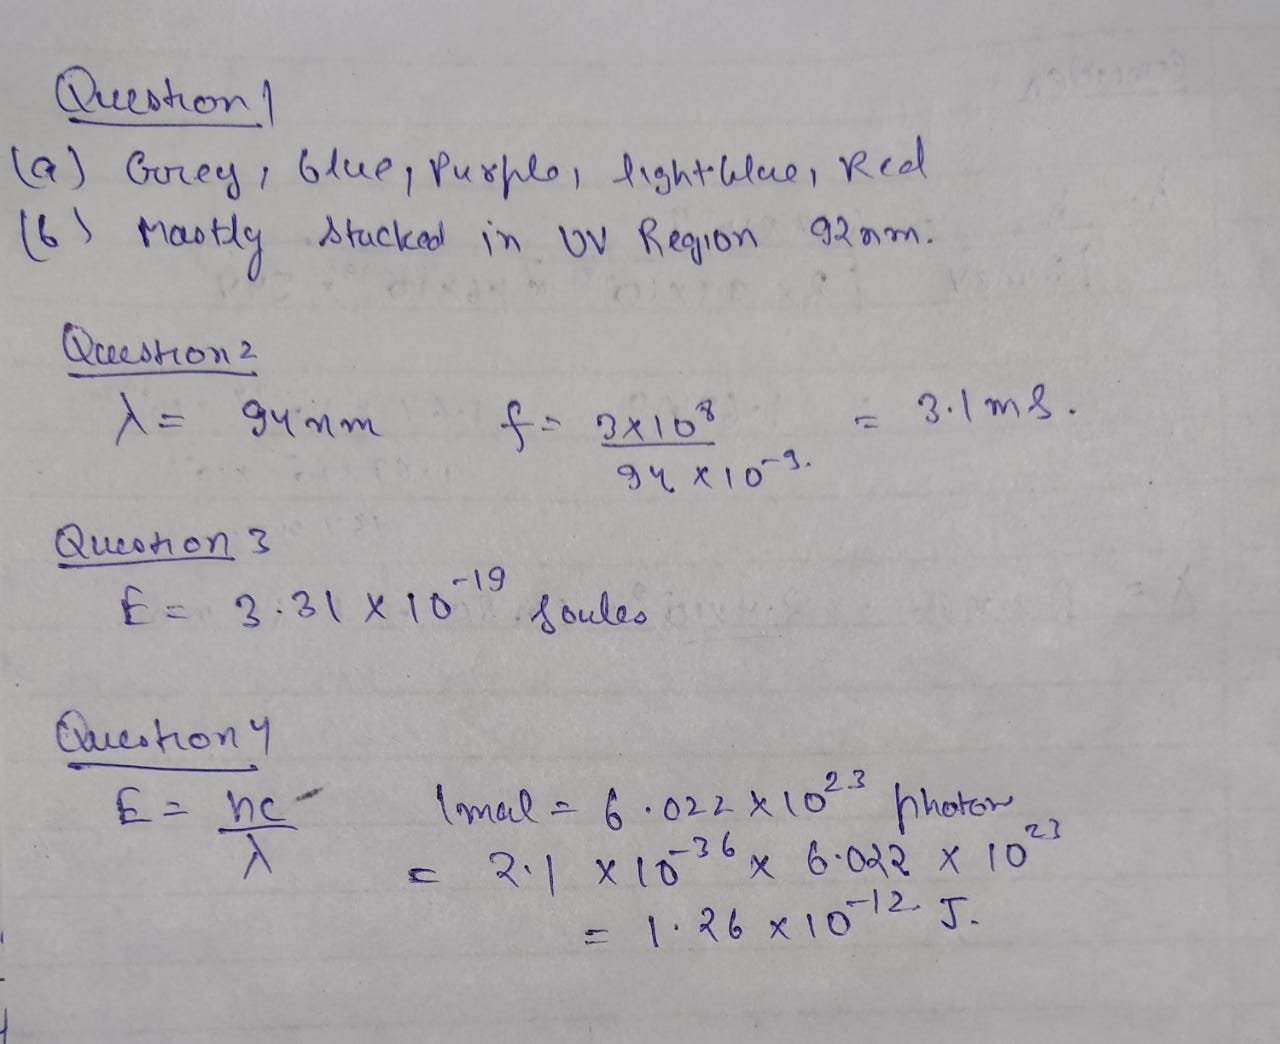 Question 1
(a) Grey, Blue, Purple, lightblue, Red
(b) Mostly stacked in UV Region 92nm.
Question 2
λ = 94nm f = 3×10⁸ / 94 × 10⁻⁹. = 3.1 ms.
Question 3
E = 3.31 × 10⁻¹⁹ Joules
Question 4
E = hc / λ 1mol = 6.022 × 10²³ photon
= 2.1 × 10⁻³⁶ × 6.022 × 10²³
= 1.26 × 10⁻¹² J.